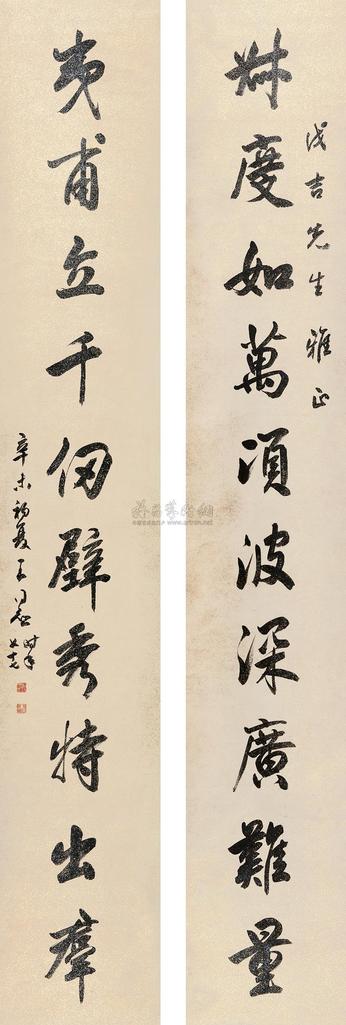 叔度如萬頃波深廣難量
吉先生雅正
夷甫立千仞壁秀特出羣
辛未初夏王同愈時年
www.artron.net